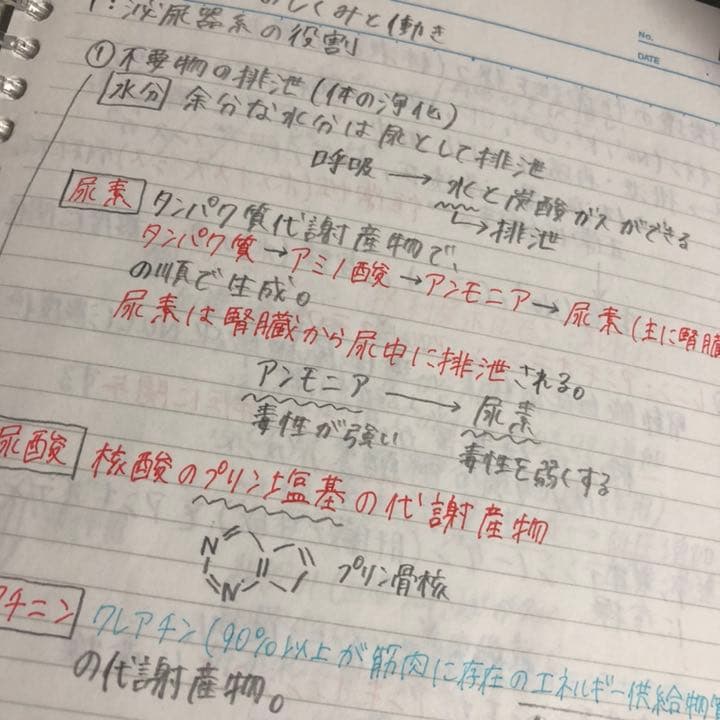 しくみと働き
No.
1. 泌尿器系の役割
DATE
① 不要物の排泄(体の浄化)
水分 余分な水分は尿として排泄
呼吸 → 水と炭酸ガスができる
↳ 排泄
尿素 タンパク質代謝産物で、
タンパク質 → アミノ酸 → アンモニア → 尿素(主に腎臓
の順で生成。
尿素は腎臓から尿中に排泄される。
アンモニア → 尿素
毒性が強い 毒性を弱くする
尿酸 核酸のプリン塩基の代謝産物
N
N プリン骨核
アチニン クレアチン(90%以上が筋肉に存在のエネルギー供給物質
の代謝産物。